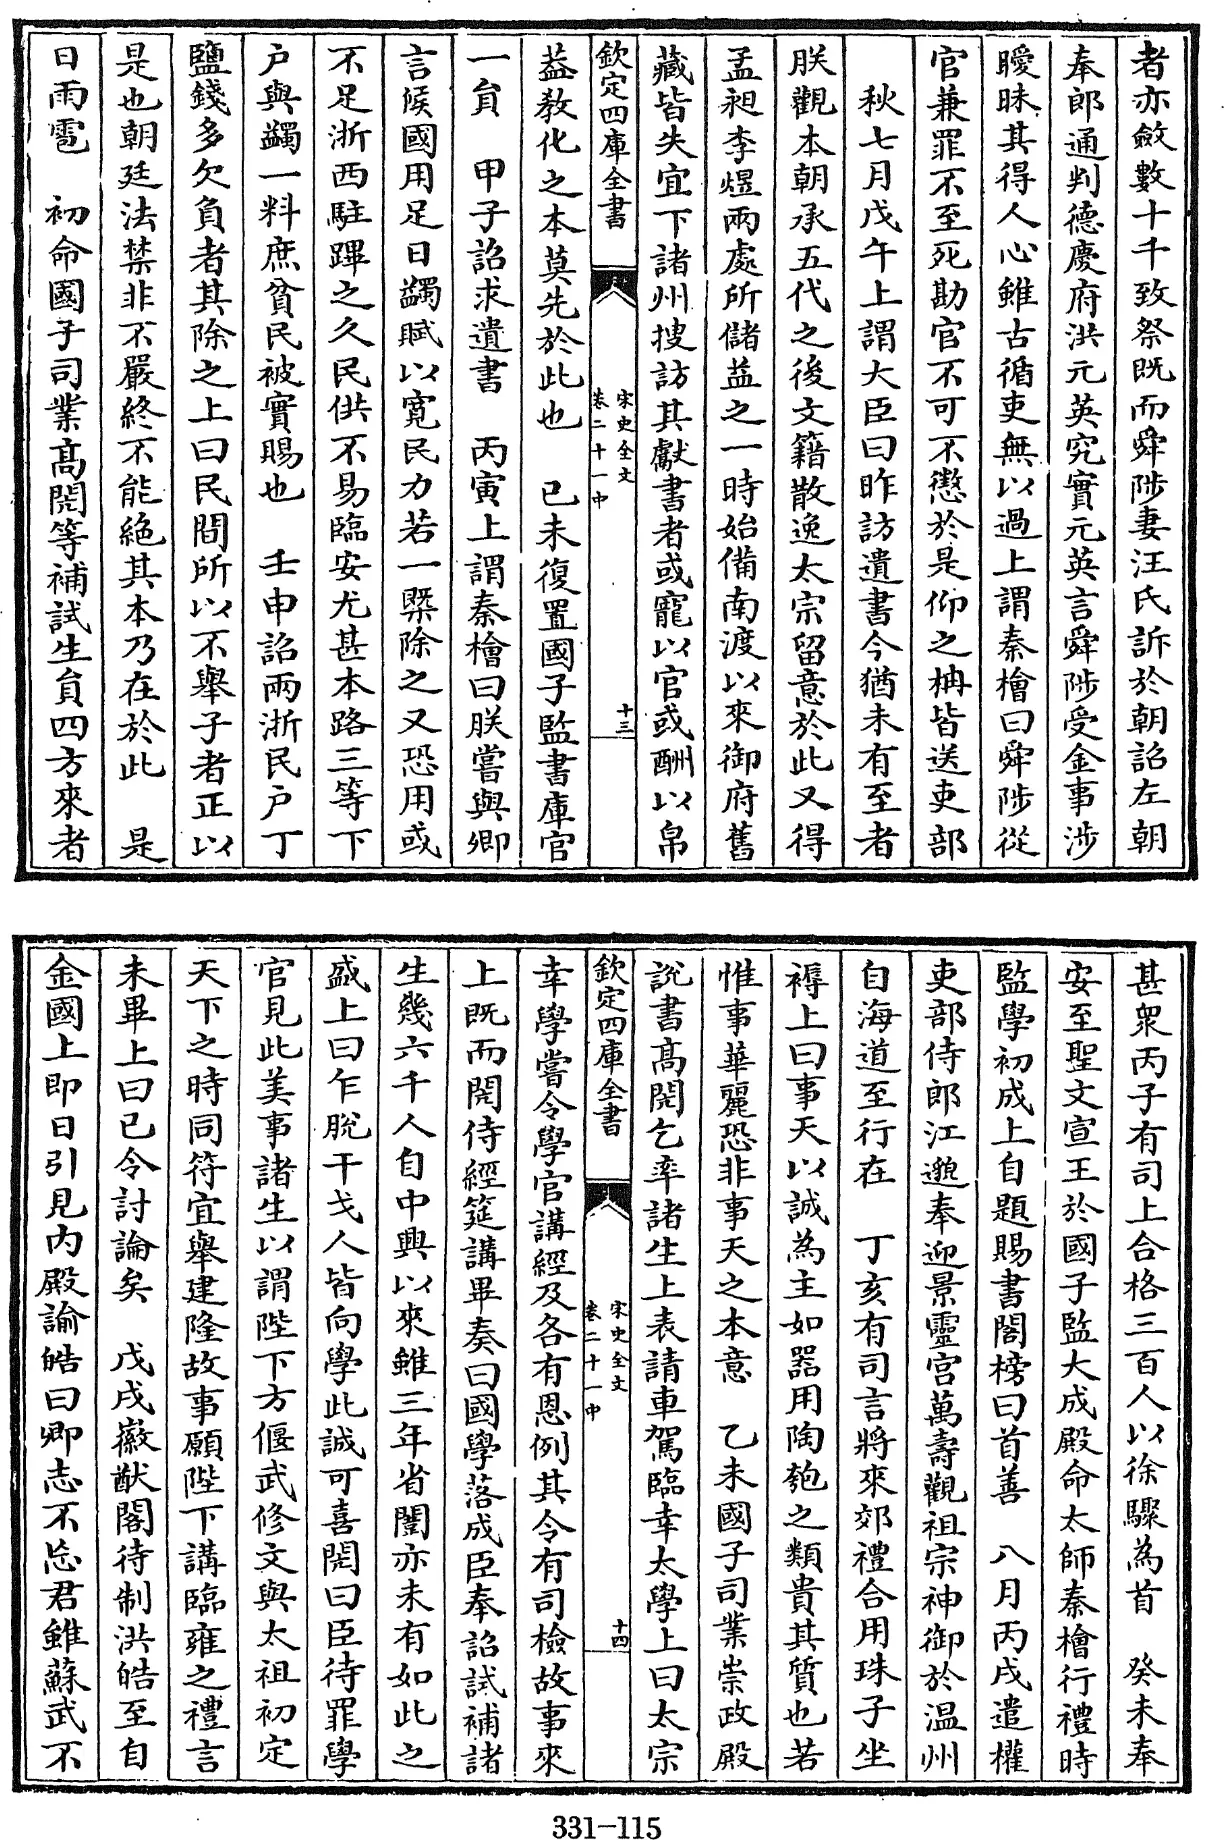 者亦斂數十千致祭既而舜陟妻汪氏訴於朝詔左朝
奉郎通判德慶府洪元英究實元英言舜陟受金事涉
曖昧其得人心雖古循吏無以過上謂秦檜曰舜陟從
官兼罪不至死勘官不可不懲於是仰之柟皆送吏部
秋七月戊午上謂大臣曰昨訪遺書今猶未有至者
朕觀本朝承五代之後文籍散逸太宗留意於此又得
孟昶李煜兩處所儲益之一時始備南渡以來御府舊
藏皆失宜下諸州搜訪其獻書者或寵以官或酬以帛
欽定四庫全書
宋史全文
卷二十一中
十三
葢教化之本莫先於此也 已未復置國子監書庫官
一員 甲子詔求遺書 丙寅上謂秦檜曰朕嘗與卿
言候國用足日蠲賦以寛民力若一槩除之又恐用或
不足浙西駐蹕之久民供不易臨安尤甚本路三等下
户與蠲一料庶貧民被實賜也 壬申詔兩浙民户丁
鹽錢多欠負者其除之上曰民間所以不舉子者正以
是也朝廷法禁非不嚴終不能絶其本乃在於此 是
日雨雹 初命國子司業高閌等補試生員四方來者
甚衆丙子有司上合格三百人以徐驟為首 癸未奉
安至聖文宣王於國子監大成殿命太師秦檜行禮時
監學初成上自題賜書閣榜曰首善 八月丙戌遣權
吏部侍郎江邈奉迎景靈宫萬壽觀祖宗神御於温州
自海道至行在 丁亥有司言將來郊禮合用珠子坐
褥上曰事天以誠為主如器用陶匏之類貴其質也若
惟事華麗恐非事天之本意 乙未國子司業崇政殿
說書高閌乞率諸生上表請車駕臨幸太學上曰太宗
欽定四庫全書
宋史全文
卷二十一中
十四
幸學嘗令學官講經及各有恩例其令有司檢故事來
上既而閌侍經筵講畢奏曰國學落成臣奉詔試補諸
生幾六千人自中興以來雖三年省闈亦未有如此之
盛上曰乍脱干戈人皆向學此誠可喜閌曰臣待罪學
官見此美事諸生以謂陛下方偃武修文與太祖初定
天下之時同符宜舉建隆故事願陛下講臨雍之禮言
未畢上曰已令討論矣 戊戌徽猷閣待制洪皓至自
金國上即日引見内殿諭皓曰卿志不忘君雖蘇武不
331-115